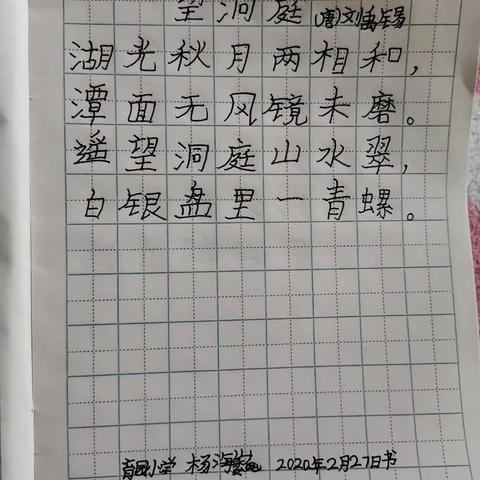 望洞庭 (唐)刘禹锡
湖光秋月两相和，
潭面无风镜未磨。
遥望洞庭山水翠，
白银盘里一青螺。
小学 杨海 2020年2月27日书